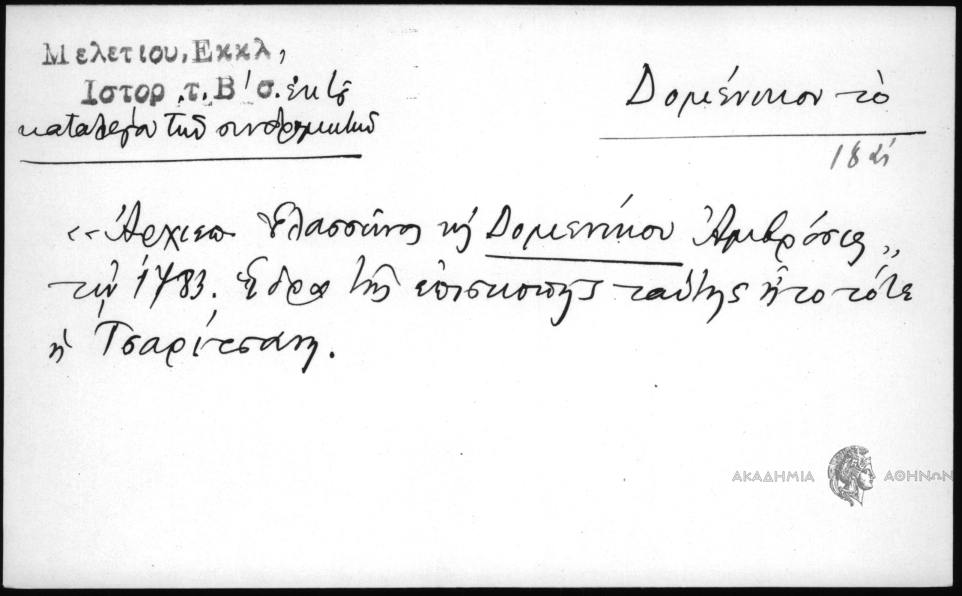 Μελετίου, Εκκλ,
Ιστορ. τ. Β' σ. ἐκ τοῦ
καταλόγου τῶν συνδρομητῶν
Δομένικον τὸ
18
«Ἀρχιεπ. Ἐλασσῶνος κὴ Δομενίκου Ἀμβρόσιος„
τῷ 1783. Ἕδρα τῆς ἐπισκοπῆς ταύτης ἦτο τότε
ἡ Τσαρίτσανη.
ΑΚΑΔΗΜΙΑ ΑΘΗΝΩΝ